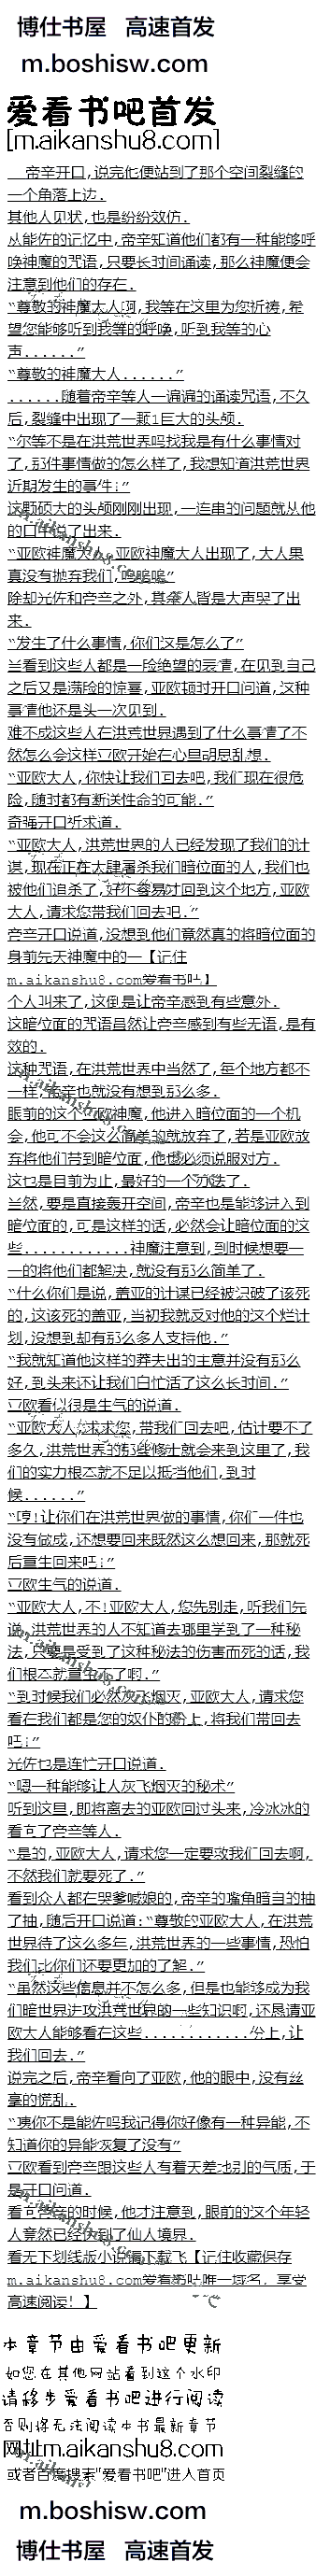 博仕书屋 高速首发
m.boshisw.com
爱看书吧首发
[m.aikanshu8.com]
帝辛开口,说完他便站到了那个空间裂缝的
一个角落上边.
其他人见状,也是纷纷效仿.
从能佐的记忆中,帝辛知道他们都有一种能够呼
唤神魔的咒语,只要长时间诵读,那么神魔便会
注意到他们的存在.
“尊敬的神魔大人啊,我等在这里为您祈祷,希
望您能够听到我等的呼唤,听到我等的心
声......”
“尊敬的神魔大人......”
......随着帝辛等人一遍遍的诵读咒语,不久
后,裂缝中出现了一颗1巨大的头颅.
“尔等不是在洪荒世界吗找我是有什么事情对
了,那件事情做的怎么样了,我想知道洪荒世界
近期发生的事件!”
这颗硕大的头颅刚刚出现,一连串的问题就从他
的口中说了出来.
“亚欧神魔大人,亚欧神魔大人出现了,大人果
真没有抛弃我们,呜呜呜”
除却光佐和帝辛之外,其余人皆是大声哭了出
来.
“发生了什么事情,你们这是怎么了”
当看到这些人都是一脸绝望的表情,在见到自己
之后又是满脸的惊喜,亚欧顿时开口问道,这种
事情他还是头一次见到.
难不成这些人在洪荒世界遇到了什么事情了不
然怎么会这样亚欧开始在心里胡思乱想.
“亚欧大人,你快让我们回去吧,我们现在很危
险,随时都有断送性命的可能.”
奇强开口祈求道.
“亚欧大人,洪荒世界的人已经发现了我们的计
谋,现在正在大肆屠杀我们暗位面的人,我们也
被他们追杀了,好不容易才回到这个地方,亚欧
大人,请求您带我们回去吧.”
帝辛开口说道,没想到他们竟然真的将暗位面的
身前先天神魔中的一【记住
m.aikanshu8.com爱看书吧】
个人叫来了,这倒是让帝辛感到有些意外.
这暗位面的咒语虽然让帝辛感到有些无语,是有
效的.
这种咒语,在洪荒世界中当然了,每个地方都不
一样,帝辛也就没有想到那么多.
眼前的这个亚欧神魔,他进入暗位面的一个机
会,他可不会这么简单的就放弃了,若是亚欧放
弃将他们带到暗位面,他也必须说服对方.
这也是目前为止,最好的一个方法了.
当然,要是直接轰开空间,帝辛也是能够进入到
暗位面的,可是这样的话,必然会让暗位面的这
些............神魔注意到,到时候想要一
一的将他们都解决,就没有那么简单了.
“什么你们是说,盖亚的计谋已经被识破了该死
的,这该死的盖亚,当初我就反对他的这个烂计
划,没想到却有那么多人支持他.”
“我就知道他这样的莽夫出的主意并没有那么
好,到头来还让我们白忙活了这么长时间.”
亚欧看似很是生气的说道.
“亚欧大人,求求您,带我们回去吧,估计要不了
多久,洪荒世界的那些修士就会来到这里了,我
们的实力根本就不足以抵挡他们,到时
候......”
“哼!让你们在洪荒世界做的事情,你们一件也
没有做成,还想要回来既然这么想回来,那就死
后重生回来吧!”
亚欧生气的说道.
“亚欧大人,不!亚欧大人,您先别走,听我们先
说,洪荒世界的人不知道去哪里学到了一种秘
法,只要是受到了这种秘法的伤害而死的话,我
们根本就重生不了啊.”
“到时候我们必然灰飞烟灭,亚欧大人,请求您
看在我们都是您的奴仆的份上,将我们带回去
吧!”
光佐也是连忙开口说道.
“嗯一种能够让人灰飞烟灭的秘术”
听到这里,即将离去的亚欧回过头来,冷冰冰的
看向了帝辛等人.
“是的,亚欧大人,请求您一定要救我们回去啊,
不然我们就要死了.”
看到众人都在哭爹喊娘的,帝辛的嘴角暗自的抽
了抽,随后开口说道:“尊敬的亚欧大人,在洪荒
世界待了这么多年,洪荒世界的一些事情,恐怕
我们比你们还要更加的了解.”
“虽然这些信息并不怎么多,但是也能够成为我
们暗世界进攻洪荒世界的一些知识啊,还恳请亚
欧大人能够看在这些............份上,让
我们回去.”
说完之后,帝辛看向了亚欧,他的眼中,没有丝
毫的慌乱.
“咦你不是能佐吗我记得你好像有一种异能,不
知道你的异能恢复了没有”
亚欧看到帝辛跟这些人有着天差地别的气质,于
是开口问道.
看向帝辛的时候,他才注意到,眼前的这个年轻
人竟然已经达到了仙人境界.
看无下划线版小说需下载飞【记住收藏保存
m.aikanshu8.com爱看书吧唯一域名，享受
高速阅读！】
本章节由爱看书吧更新
如您在其他网站看到这个水印
请移步爱看书吧进行阅读
否则将无法阅读本书最新章节
网址m.aikanshu8.com
或者百度搜索"爱看书吧"进入首页
m.boshisw.com
博仕书屋 高速首发